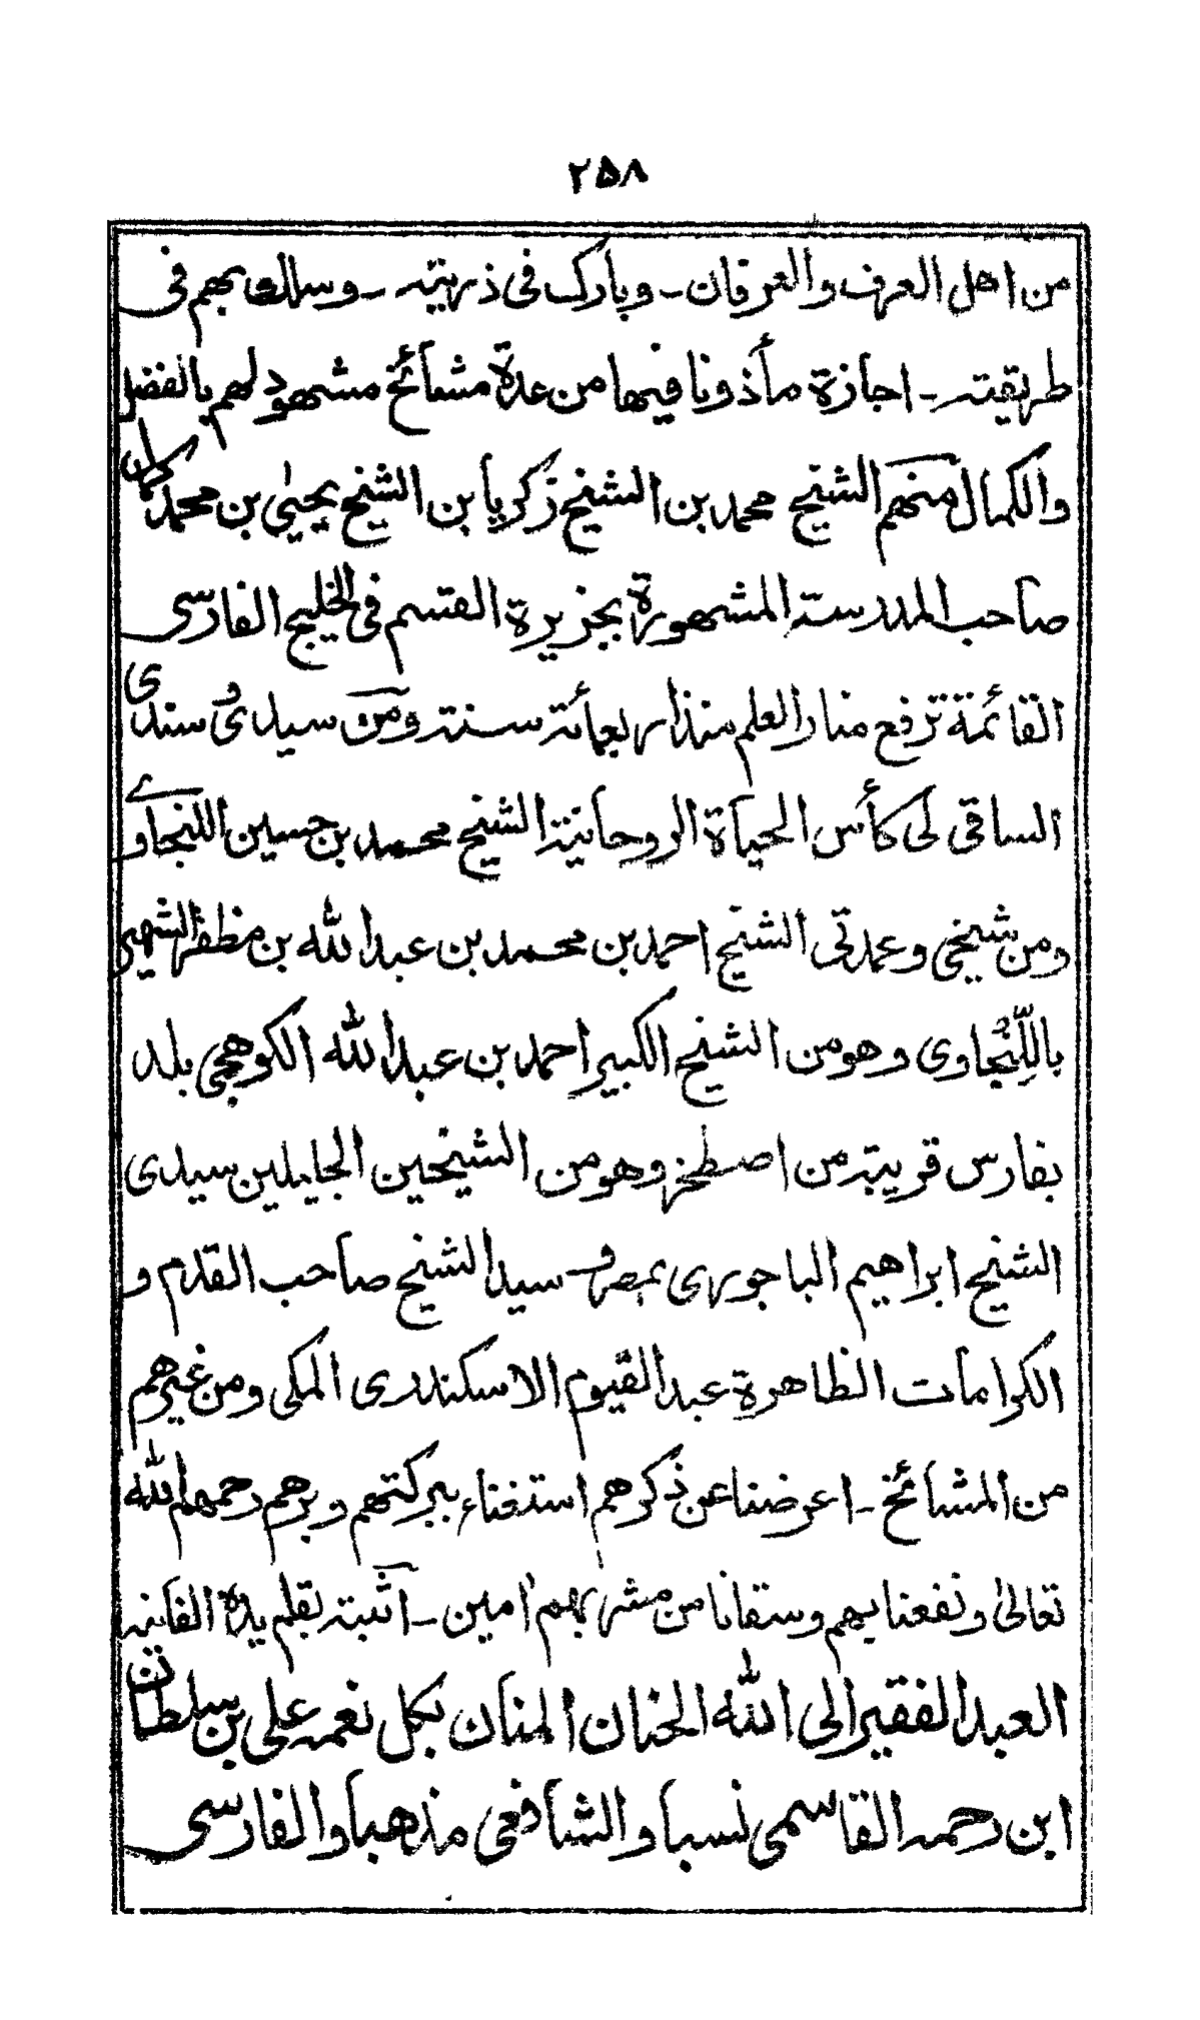 ٢٥٨
من اهل العرف والعرفان ـ وبارك فى ذريته ـ وسلك بهم فى
طريقته ـ اجازة مأذونا فيها من عدة مشائخ مشهود لهم بالفضل
والكمال منهم الشيخ محمد بن الشيخ زكريا بن الشيخ يحيىٰ بن محمد كمال
صاحب المدرسة المشهورة بجزيرة القسم فى الخليج الفارسى
القائمة ترفع منار العلم منذ اربعمائة سنة ومن سيدى و سندى
الساقى لى كأس الحياة الروحانية الشيخ محمد بن حسين اللنجاوے
ومن شيخى وعمدتى الشيخ احمد بن محمد بن عبدالله بن مظفر الشهير
باللِّنْجاوى وهو من الشيخ الكبير احمد بن عبدالله الكوهجى بلد
بفارس قريبة من اصطخر وهو من الشيخين الجليلين سيدى
الشيخ ابراهيم الباجورى بمصر و سيدا الشيخ صاحب القدم و
الكرامات الظاهرة عبدالقيوم الاسكندرى المكى ومن غيرهم
من المشائخ ـ اعرضنا عن ذكرهم استغناء ببركتهم وبرهم رحمهم الله
تعالىٰ ونفعنا بهم وسقانا من مشربهم اٰمين ـ اثبته بقلم يده الفانية
العبد الفقير الى الله الحنان المنان بكل نعمه على بن سلطان
ابن رحمه القاسمى نسبا والشافعى مذهبا والفارسى